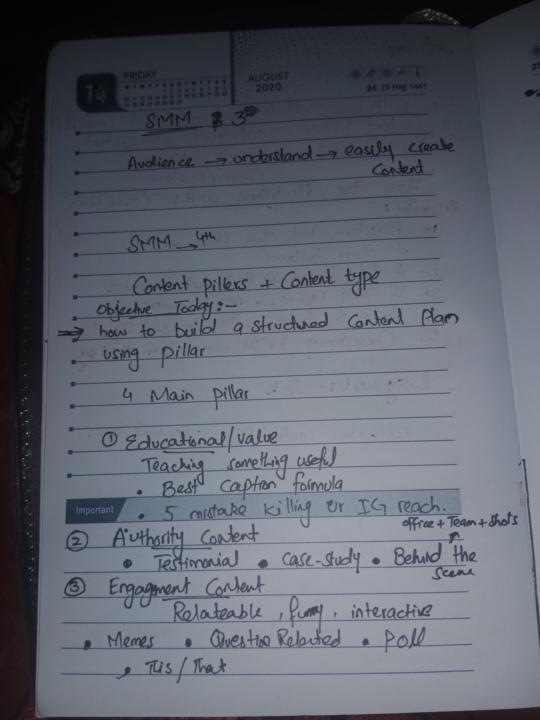 14
FRIDAY
AUGUST
2020
24, Zil Hajj 1441
SMM 3rd
Audience → understand → easily create
Content
SMM → 4th
Content pillers + Content type
Objective Today:-
⇒ how to build a structured Content Plan
using pillar
4 Main pillar
① Educational/value
Teaching something useful
• Best Caption formula
Important • 5 mistake killing ur IG reach.
office + Team + shots
② Authority Content
• Testimonial • Case-study • Behind the
Scene
③ Engagment Content
Relateable, funny, interactive
• Memes • Question Related • Poll
• This/That